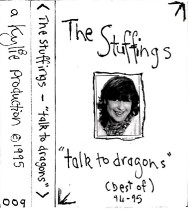 a Kyliё Production © 1995
009
< The stuffings - "talk to dragons" >
The Stuffings
"talk to dragons"
(best of)
94-95